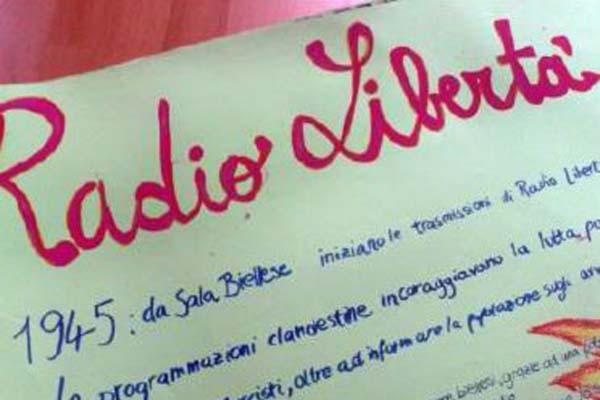 Radio Libertà
1945: da Sala Biellese iniziano le trasmissioni di Radio Libert
programmazioni clandestine incoraggiavano la lotta
oltre ad informare la popolazione sugli
grazie ad una